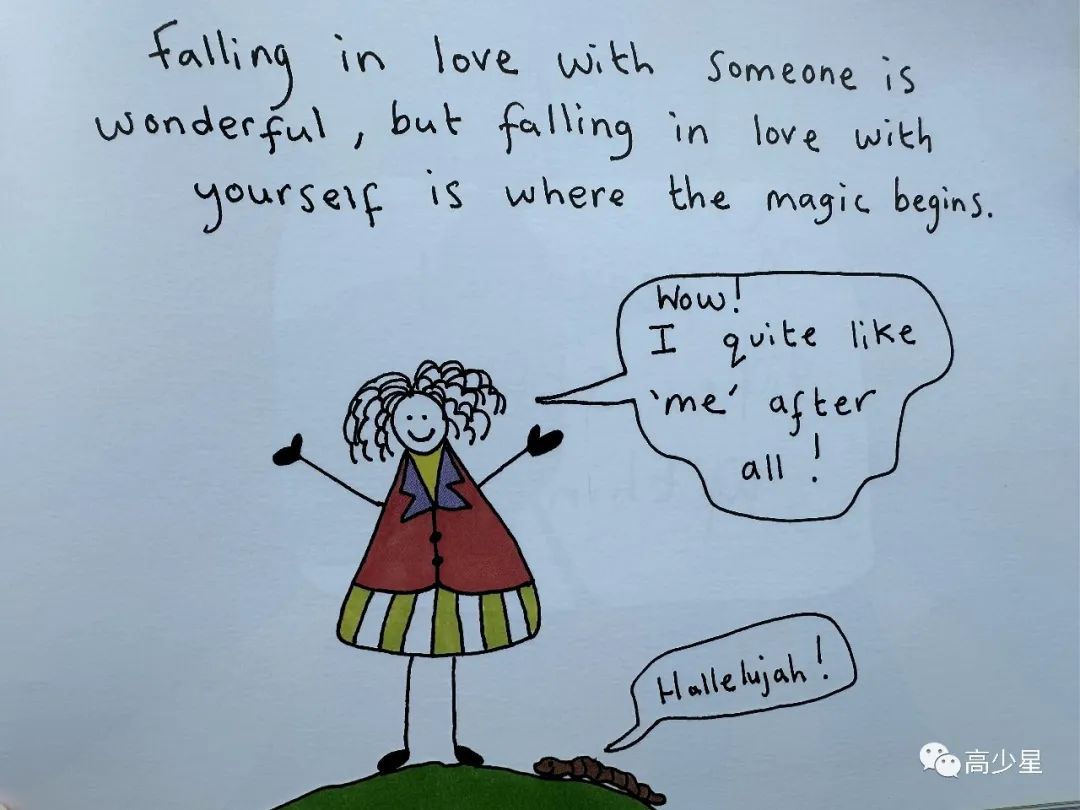 Falling in love with someone is
wonderful, but falling in love with
yourself is where the magic begins.
Wow!
I quite like
'me' after
all!
Hallelujah!
高少星